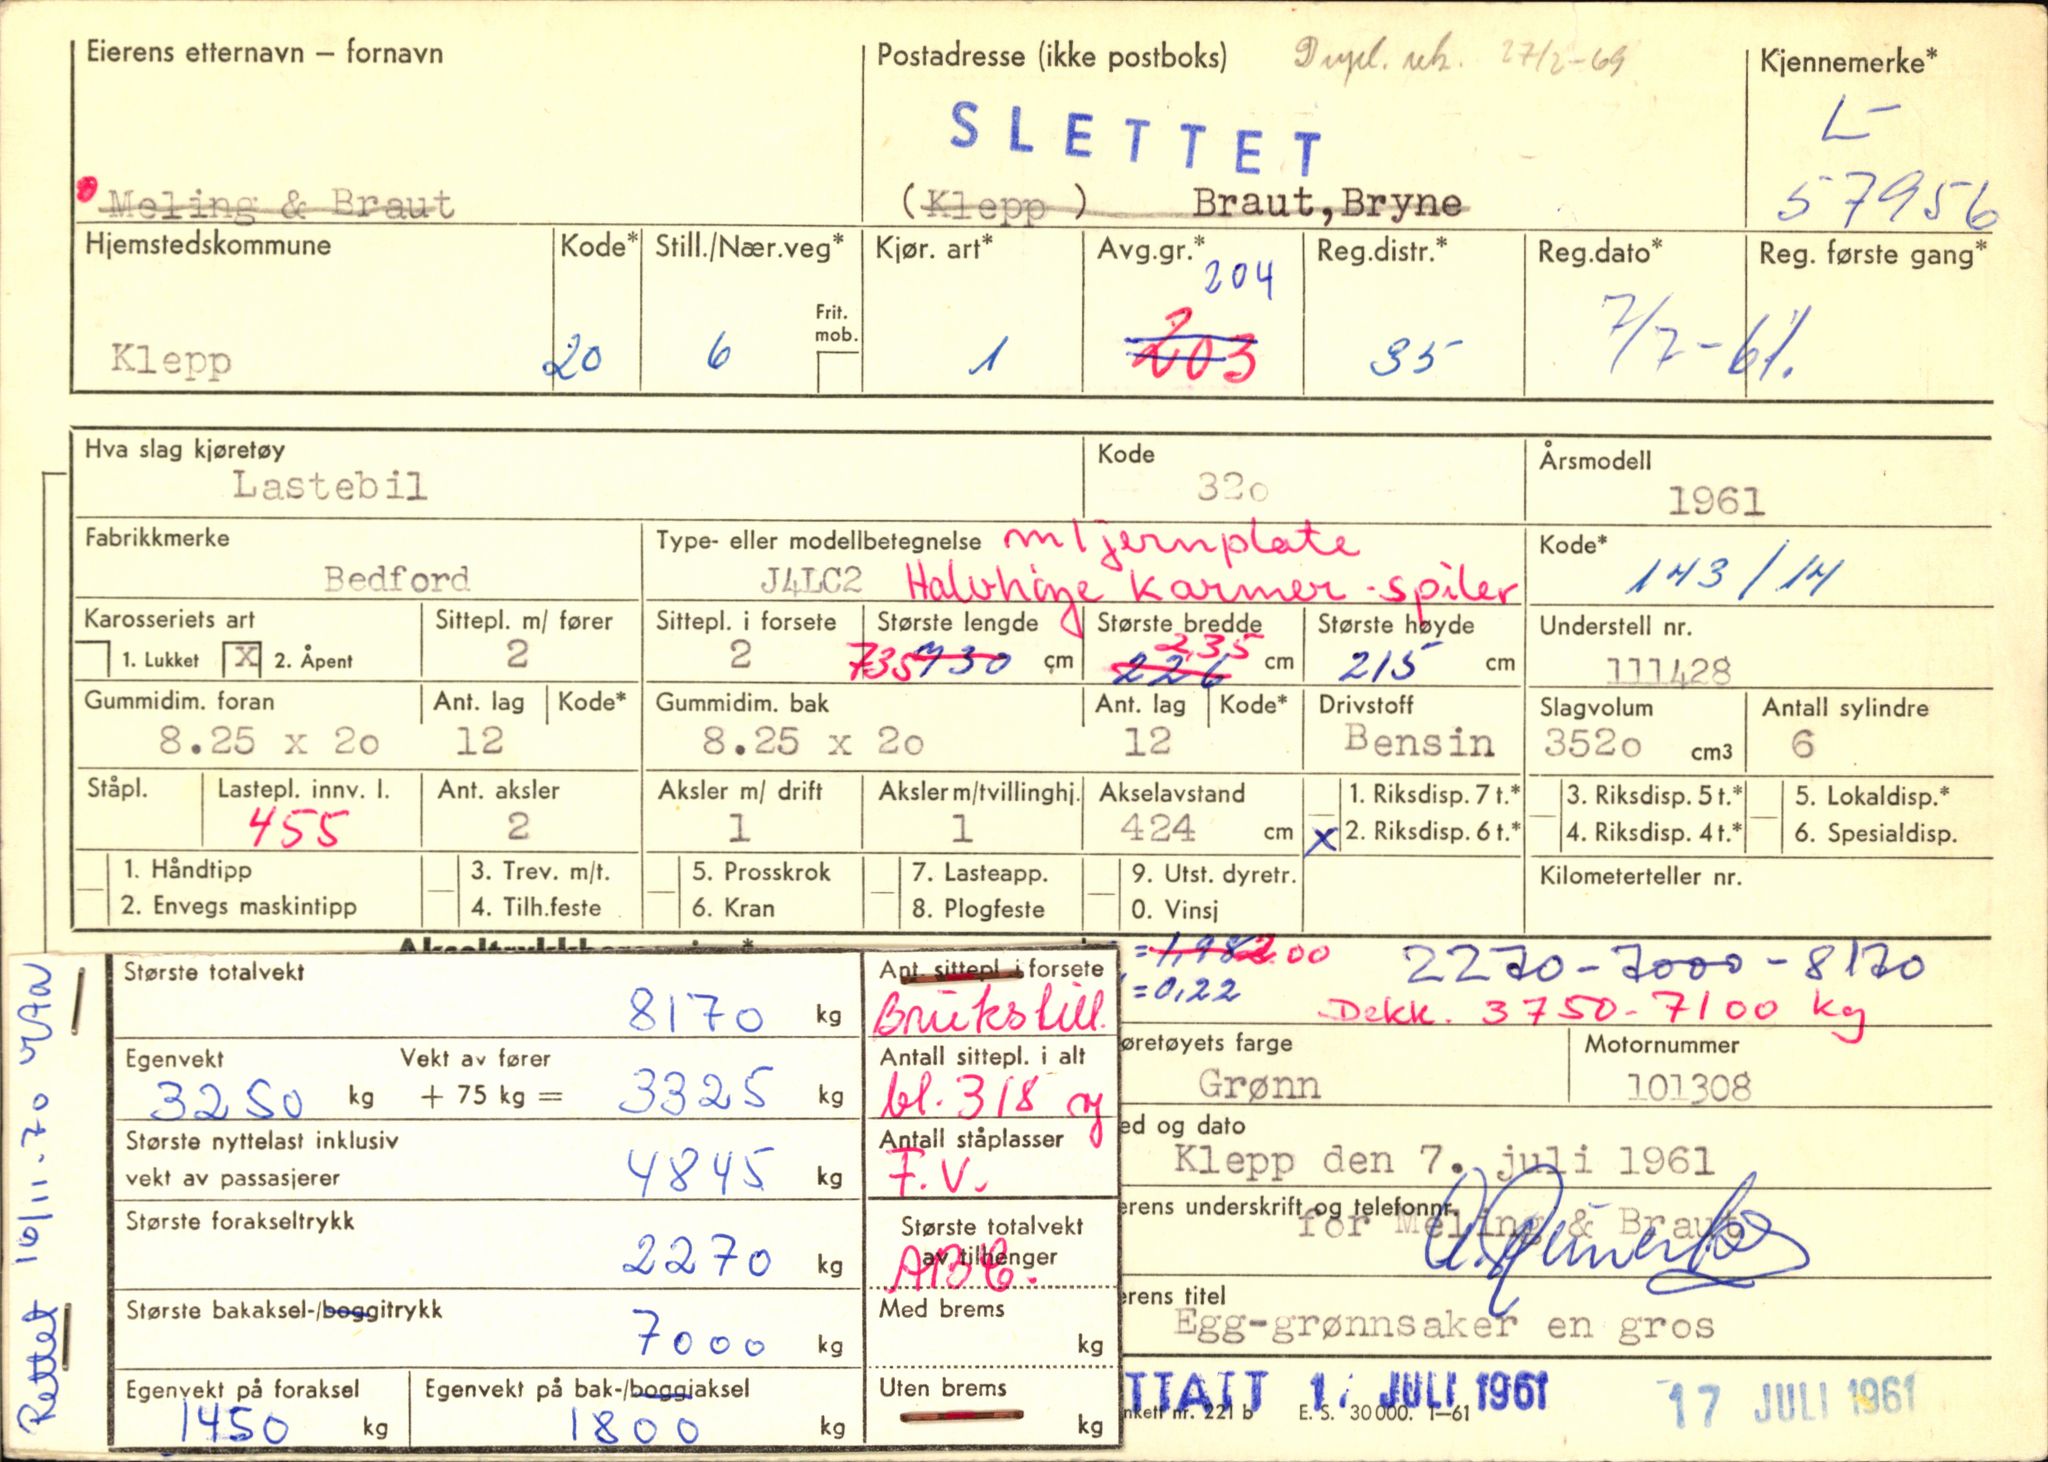 Eierens etternavn – fornavn
Postadresse (ikke postboks) Dupl. utk. 27/2-69
Kjennemerke*
SLETTET
L-
57956
Meling & Braut
(Klepp) Braut, Bryne
Hjemstedskommune Kode* Still./Nær.veg* Kjør. art* Avg.gr.* Reg.distr.* Reg.dato* Reg. første gang*
204
Frit. mob.
Klepp 20 6 1 203 35 7/7-61.
Hva slag kjøretøy Kode Årsmodell
Lastebil 320 1961
Fabrikkmerke Type- eller modellbetegnelse m/jernplate Kode*
Bedford J4LC2 Halvhøye karmer-spiler 143/14
Karosseriets art Sittepl. m/ fører Sittepl. i forsete Største lengde Største bredde Største høyde Understell nr.
1. Lukket X 2. Åpent 2 2 735 730 cm 2,35 226 cm 215 cm 111428
Gummidim. foran Ant. lag Kode* Gummidim. bak Ant. lag Kode* Drivstoff Slagvolum Antall sylindre
8.25 x 20 12 8.25 x 20 12 Bensin 3520 cm3 6
Ståpl. Lastepl. innv. l. Ant. aksler Aksler m/ drift Aksler m/tvillinghj. Akselavstand 1. Riksdisp. 7 t.* 3. Riksdisp. 5 t.* 5. Lokaldisp.*
455 2 1 1 424 cm x 2. Riksdisp. 6 t.* 4. Riksdisp. 4 t.* 6. Spesialdisp.
1. Håndtipp 3. Trev. m/t. 5. Prosskrok 7. Lasteapp. 9. Utst. dyretr. Kilometerteller nr.
2. Envegs maskintipp 4. Tilh.feste 6. Kran 8. Plogfeste 0. Vinsj
= 1,98 2.00 2270-7000-8170
= 0,22 Dekk. 3750-7100 kg
Største totalvekt 8170 kg
Ant. sittepl. i forsete
Brukstill.
Egenvekt Vekt av fører
3250 kg + 75 kg = 3325 kg
Antall sittepl. i alt
bl. 318 og
Største nyttelast inklusiv
vekt av passasjerer 4845 kg
Antall ståplasser
F.V.
Største forakseltrykk 2270 kg
Største totalvekt
av tilhenger
Største bakaksel-/boggitrykk 7000 kg
Med brems kg
Egenvekt på foraksel Egenvekt på bak-/boggiaksel
1450 kg 1800 kg
Uten brems kg
Rettet 16/11-70
øretøyets farge Motornummer
Grønn 101308
ed og dato
Klepp den 7. juli 1961
erens underskrift og telefonnr.
for Meling & Braut
erens titel
Egg-grønnsaker en gros
TTATT 17 JULI 1961 17 JULI 1961
nkett nr. 221 b E. S. 30 000. 1–61